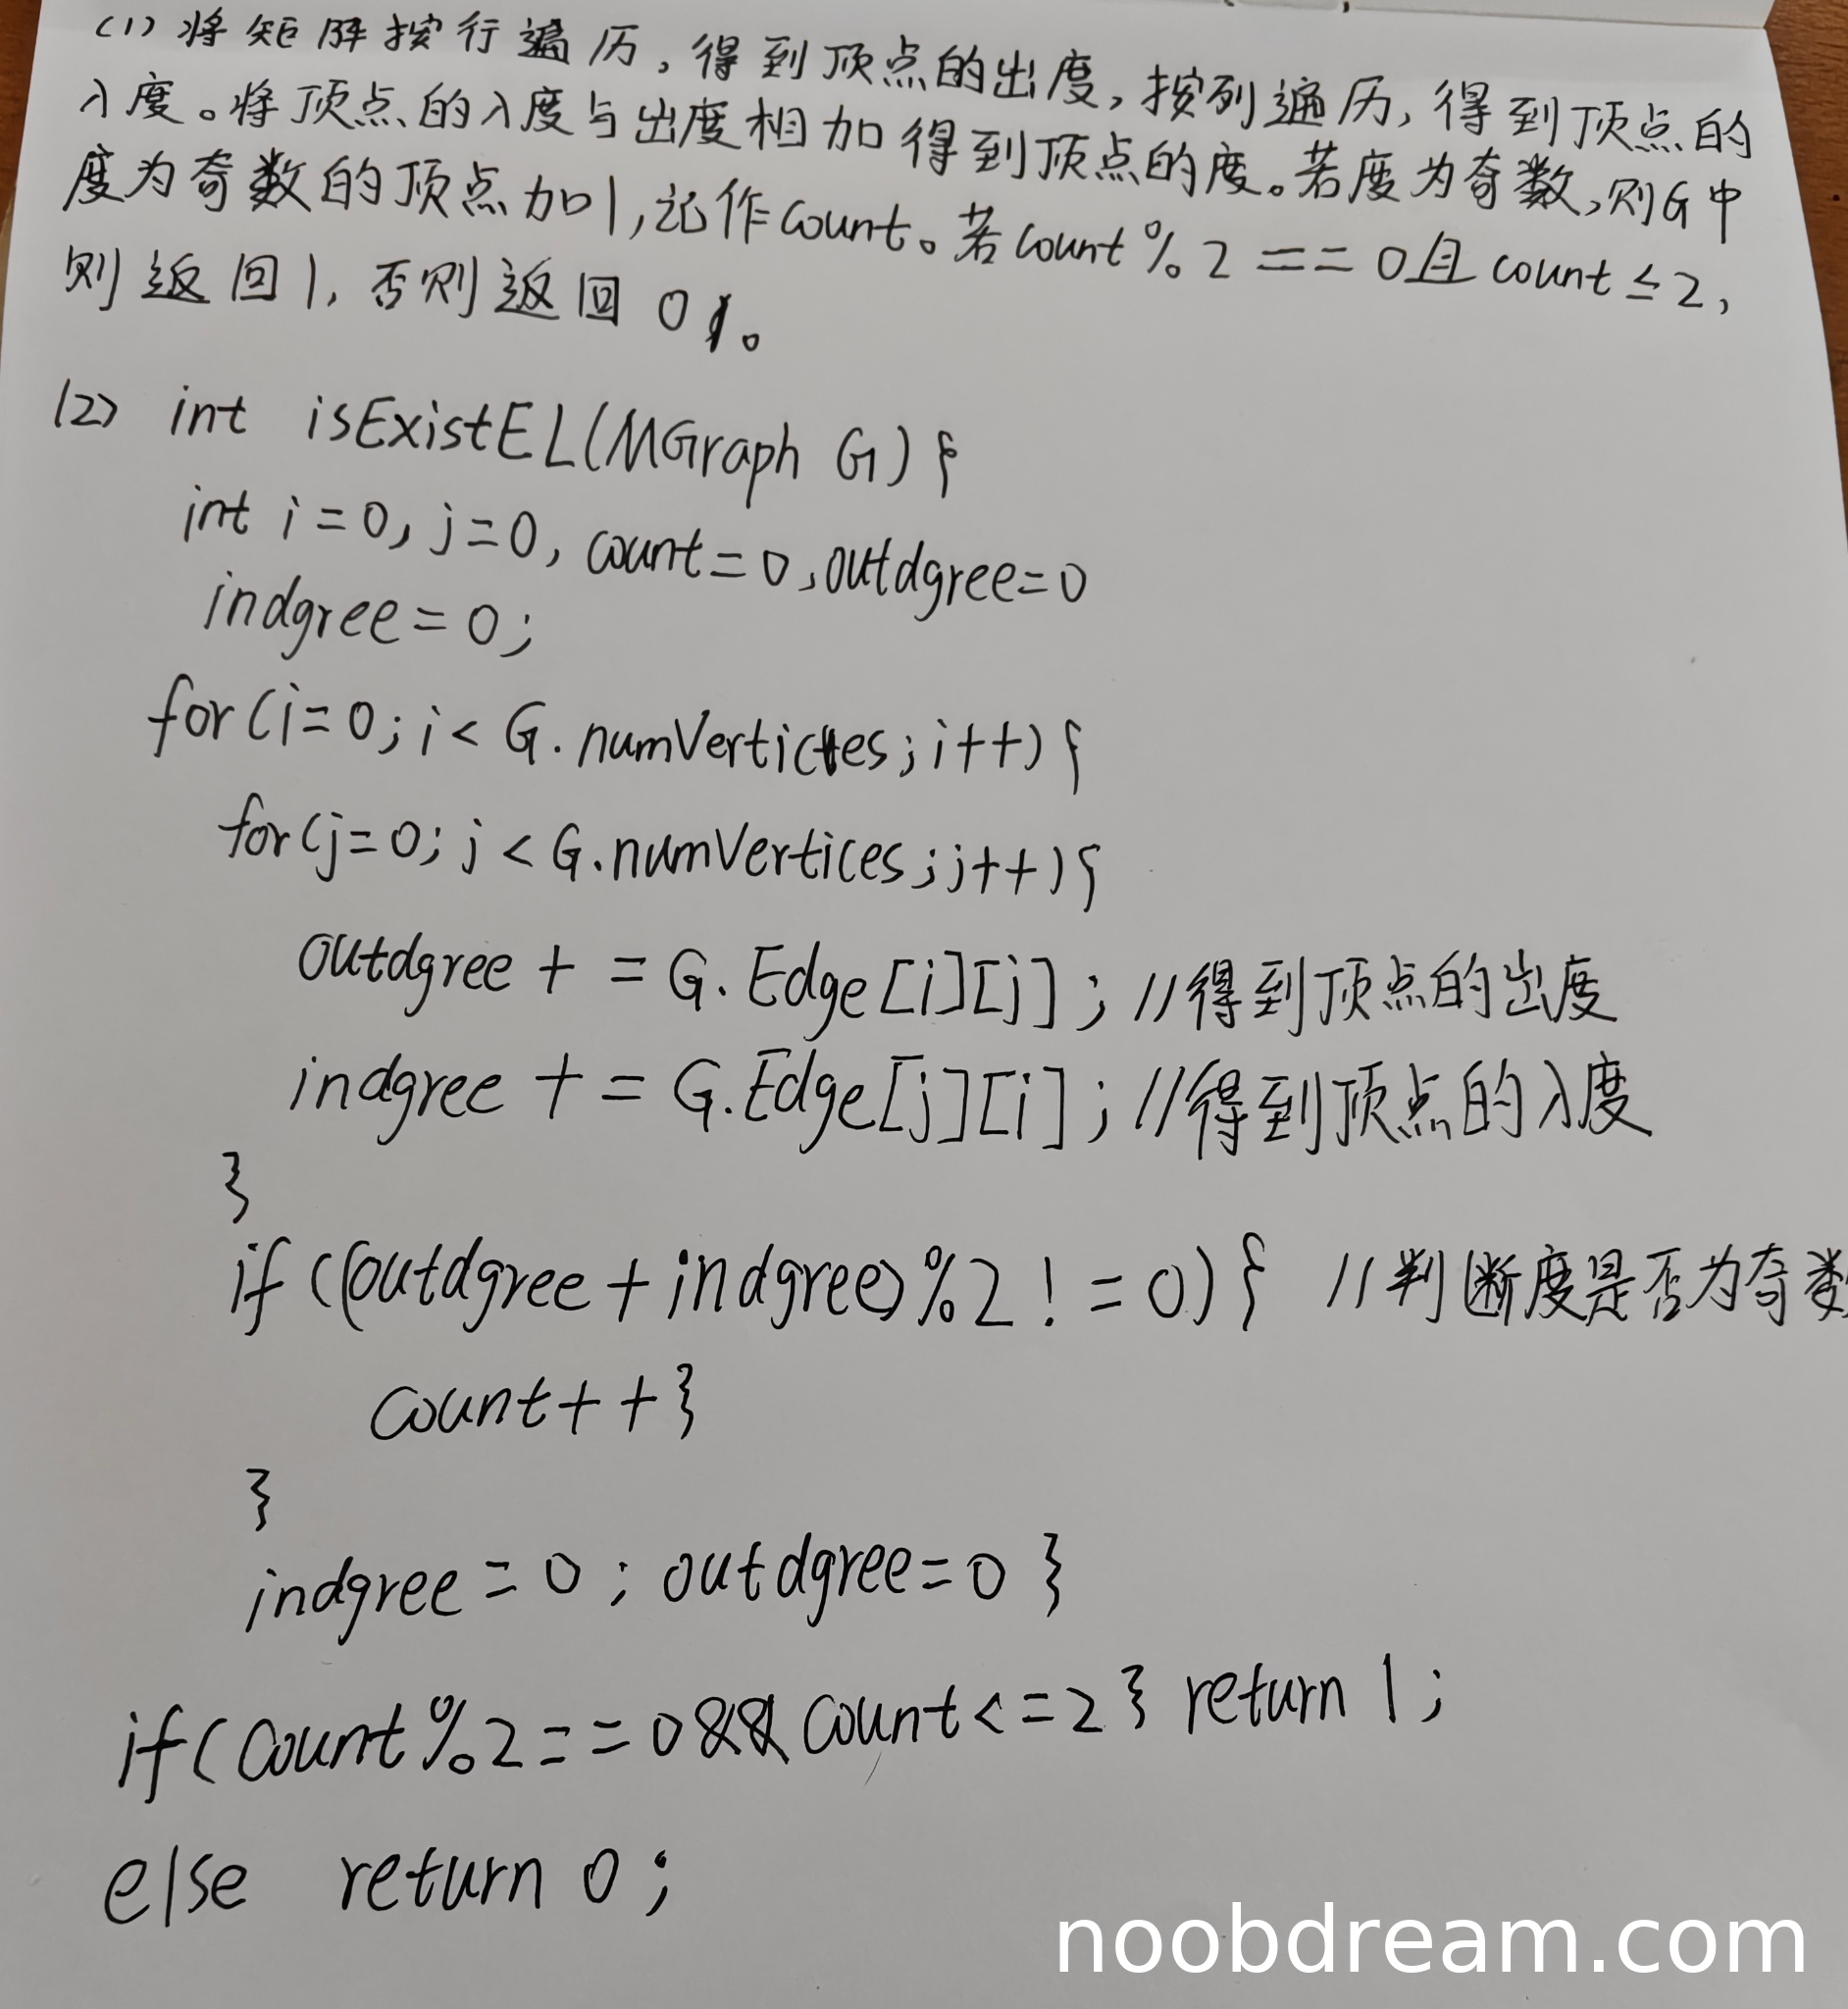 (1) 将矩阵按行遍历,得到顶点的出度,按列遍历,得到顶点的
入度。将顶点的入度与出度相加得到顶点的度。若度为奇数,则G中
度为奇数的顶点加1,记作count。若count%2==0且count≤2,
则返回1,否则返回0。
(2) int isExistEL(MGraph G){
int i=0, j=0, count=0,outdgree=0
indgree=0;
for(i=0;i<G.numVertices;i++){
for(j=0;j<G.numVertices;j++){
outdgree += G.Edge[i][j]; //得到顶点的出度
indgree += G.Edge[j][i]; //得到顶点的入度
}
if((outdgree+indgree)%2!=0){ //判断度是否为奇数
count++}
}
indgree=0; outdgree=0 }
if(count%2==0&&count<=2} return 1;
else return 0;
noobdream.com